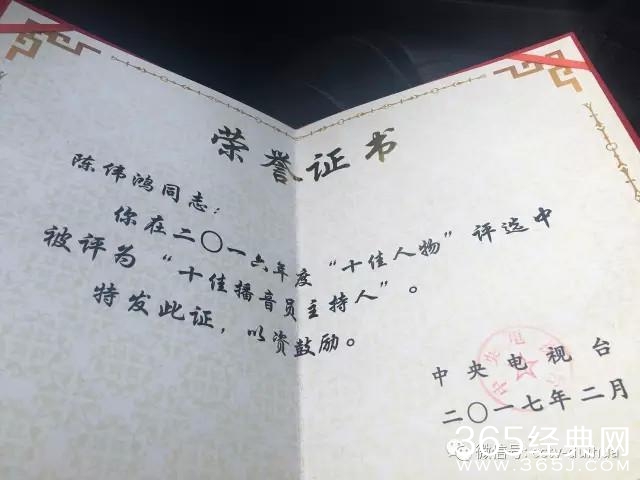 荣誉证书
陈伟鸿同志：
你在二〇一六年度“十佳人物”评选中
被评为“十佳播音员主持人”。
特发此证，以资鼓励。
中央电视台
二〇一七年二月
微信号: cctv-duihua
365经典网
WWW.365J.COM